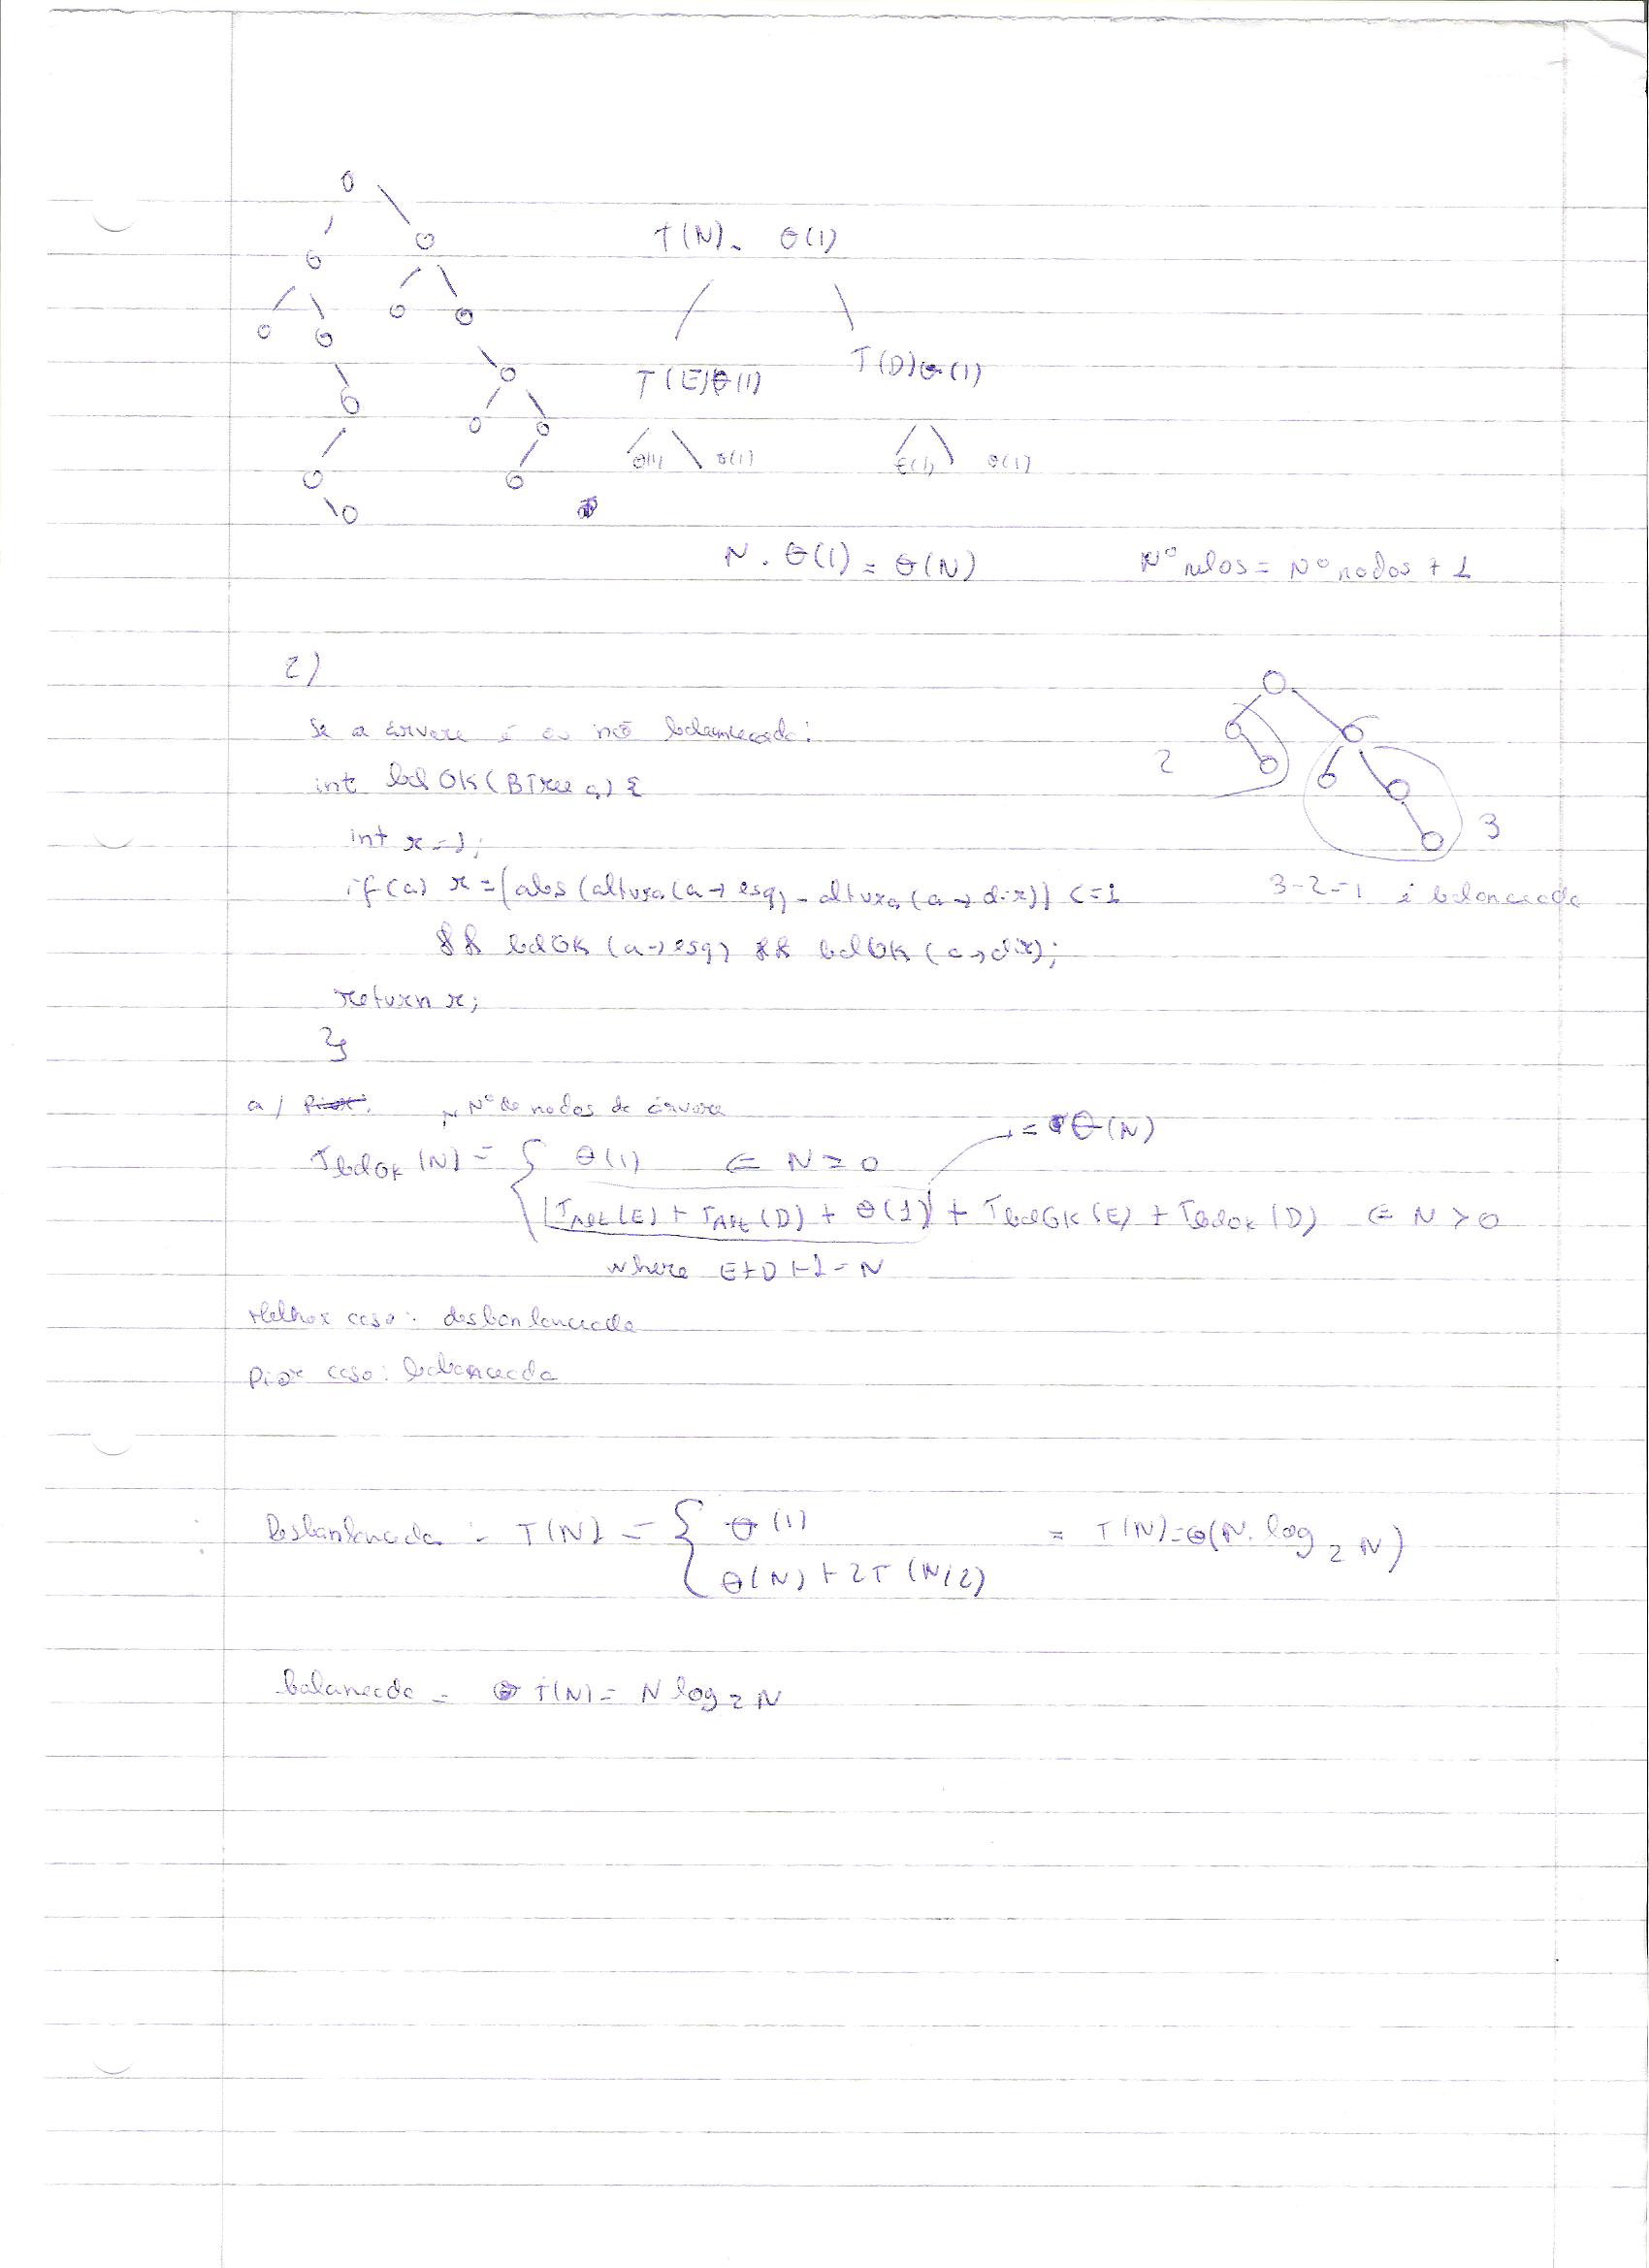 T(N) = θ(1)
T(E)θ(1) T(D)θ(1)
θ(1) θ(1) θ(1) θ(1)
N . θ(1) = θ(N) Nº nulos = Nº nodos + 1
2)
Se a árvore é ou não balanceada:
int balOK(BTree a) {
2
int x=1;
3
if(a) x = (abs(altura(a→esq) - altura(a→dir)) <=1
3-2=1 é balanceada
&& balOK(a→esq) && balOK(a→dir);
return x;
}
a) Nº de nodos da árvore
= θ(N)
TbalOK(N) = { θ(1) ⇐ N = 0
(TAlt(E) + TAlt(D) + θ(1)) + TbalOK(E) + TbalOK(D) ⇐ N > 0
where E+D+1=N
Melhor caso: desbanlanceada
Pior caso: balanceada
Desbanlanceada = T(N) = { θ(1) = T(N)=θ(N. log2 N)
θ(N) + 2T(N/2)
balanceada = T(N) = N log2 N